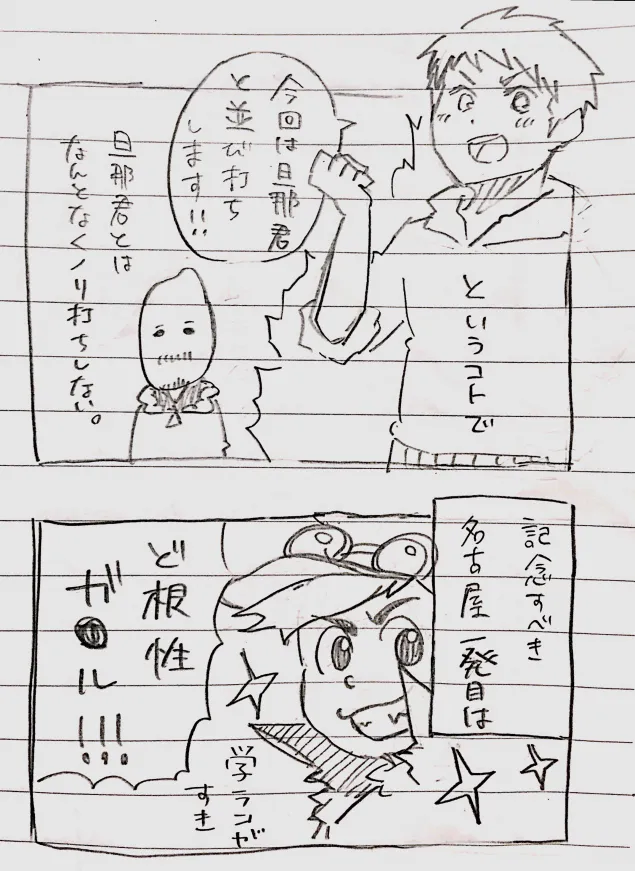 というコトで
今回は旦那君
と並び打ち
します!!
旦那君とは
なんとなくノリ打ちしない。
記念すべき
名古屋一発目は
ど根性
ガ●ル!!!
学ランが
すき